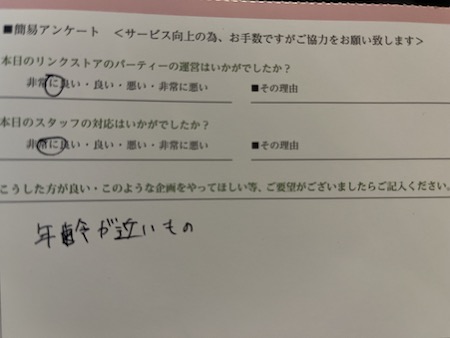 ■簡易アンケート ＜サービス向上の為、お手数ですがご協力をお願い致します＞
本日のリンクストアのパーティーの運営はいかがでしたか？
非常に良い・良い・悪い・非常に悪い ■その理由
本日のスタッフの対応はいかがでしたか？
非常に良い・良い・悪い・非常に悪い ■その理由
こうした方が良い・このような企画をやってほしい等、ご要望がございましたらご記入ください。
年齢が近いもの